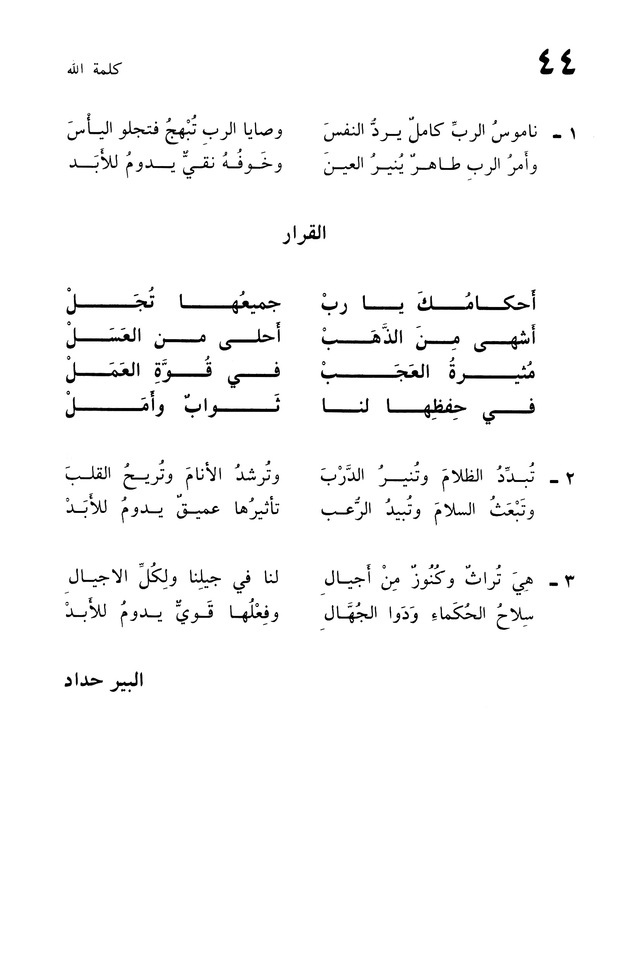 ٤٤ كلمة الله
١ - ناموسُ الربِّ كاملٌ يـردُّ النفسَ وصايا الربِ تُبْهجُ فتجلو اليـأْسَ
وأَمرُ الربِ طـاهـرٌ يُنيـرُ العيـنَ وخَـوفُـهُ نقـيٌّ يـدومُ للأبَـد
القرار
أَحكـامُـكَ يـا ربْ جميعُهـا تُجَـلْ
أَشهـى مِـنَ الذَّهَـبْ أَحلـى مـن العَسَـلْ
مُثيـرةُ العَجَـبْ فـي قُـوَّةِ العَمَـلْ
فـي حِفظِهـا لنـا ثَـوابٌ وأَمَـلْ
٢ - تُبـدِّدُ الظلامَ وتُنيـرُ الدَّرْبَ وتُرشدُ الأنامَ وتُريـحُ القلـبَ
وتَبْعَثُ السلامَ وتُبيدُ الرُّعـب تأثيرُها عميـقٌ يـدومُ للأبَـدْ
٣ - هِيَ تُراثٌ وكُنُوزٌ مِنْ أَجيـالِ لنا في جيلِنا ولِكُلِّ الاجيـالِ
سِلاحُ الحُكَماءِ وَدَوا الجُهَّـالِ وفِعْلُهـا قَـويٌّ يـدومُ للأبـدْ
البير حداد